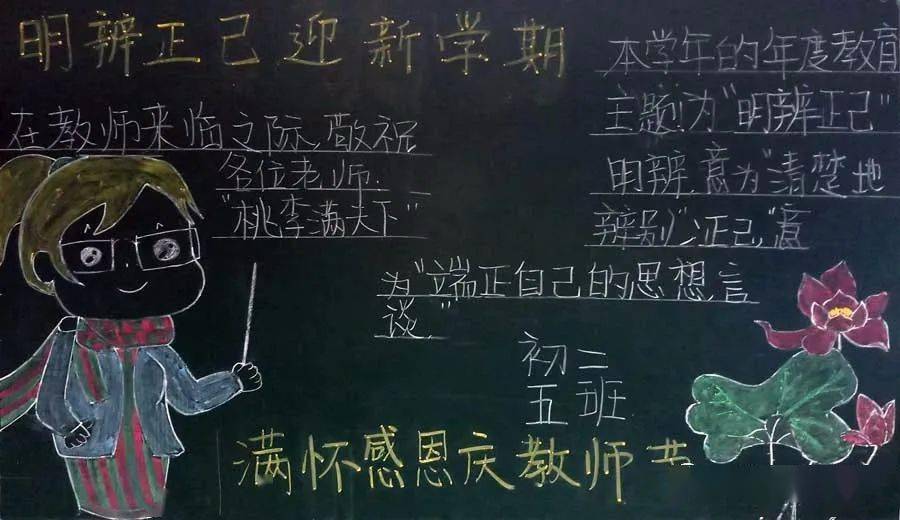 明辨正己迎新学期
在教师来临之际,敬祝
各位老师.
"桃李满天下"
本学年的年度教育
主题为"明辨正己"
明辨,意为"清楚地
辨别","正己"意
为"端正自己的思想言
谈."
初二
五班
满怀感恩庆教师节